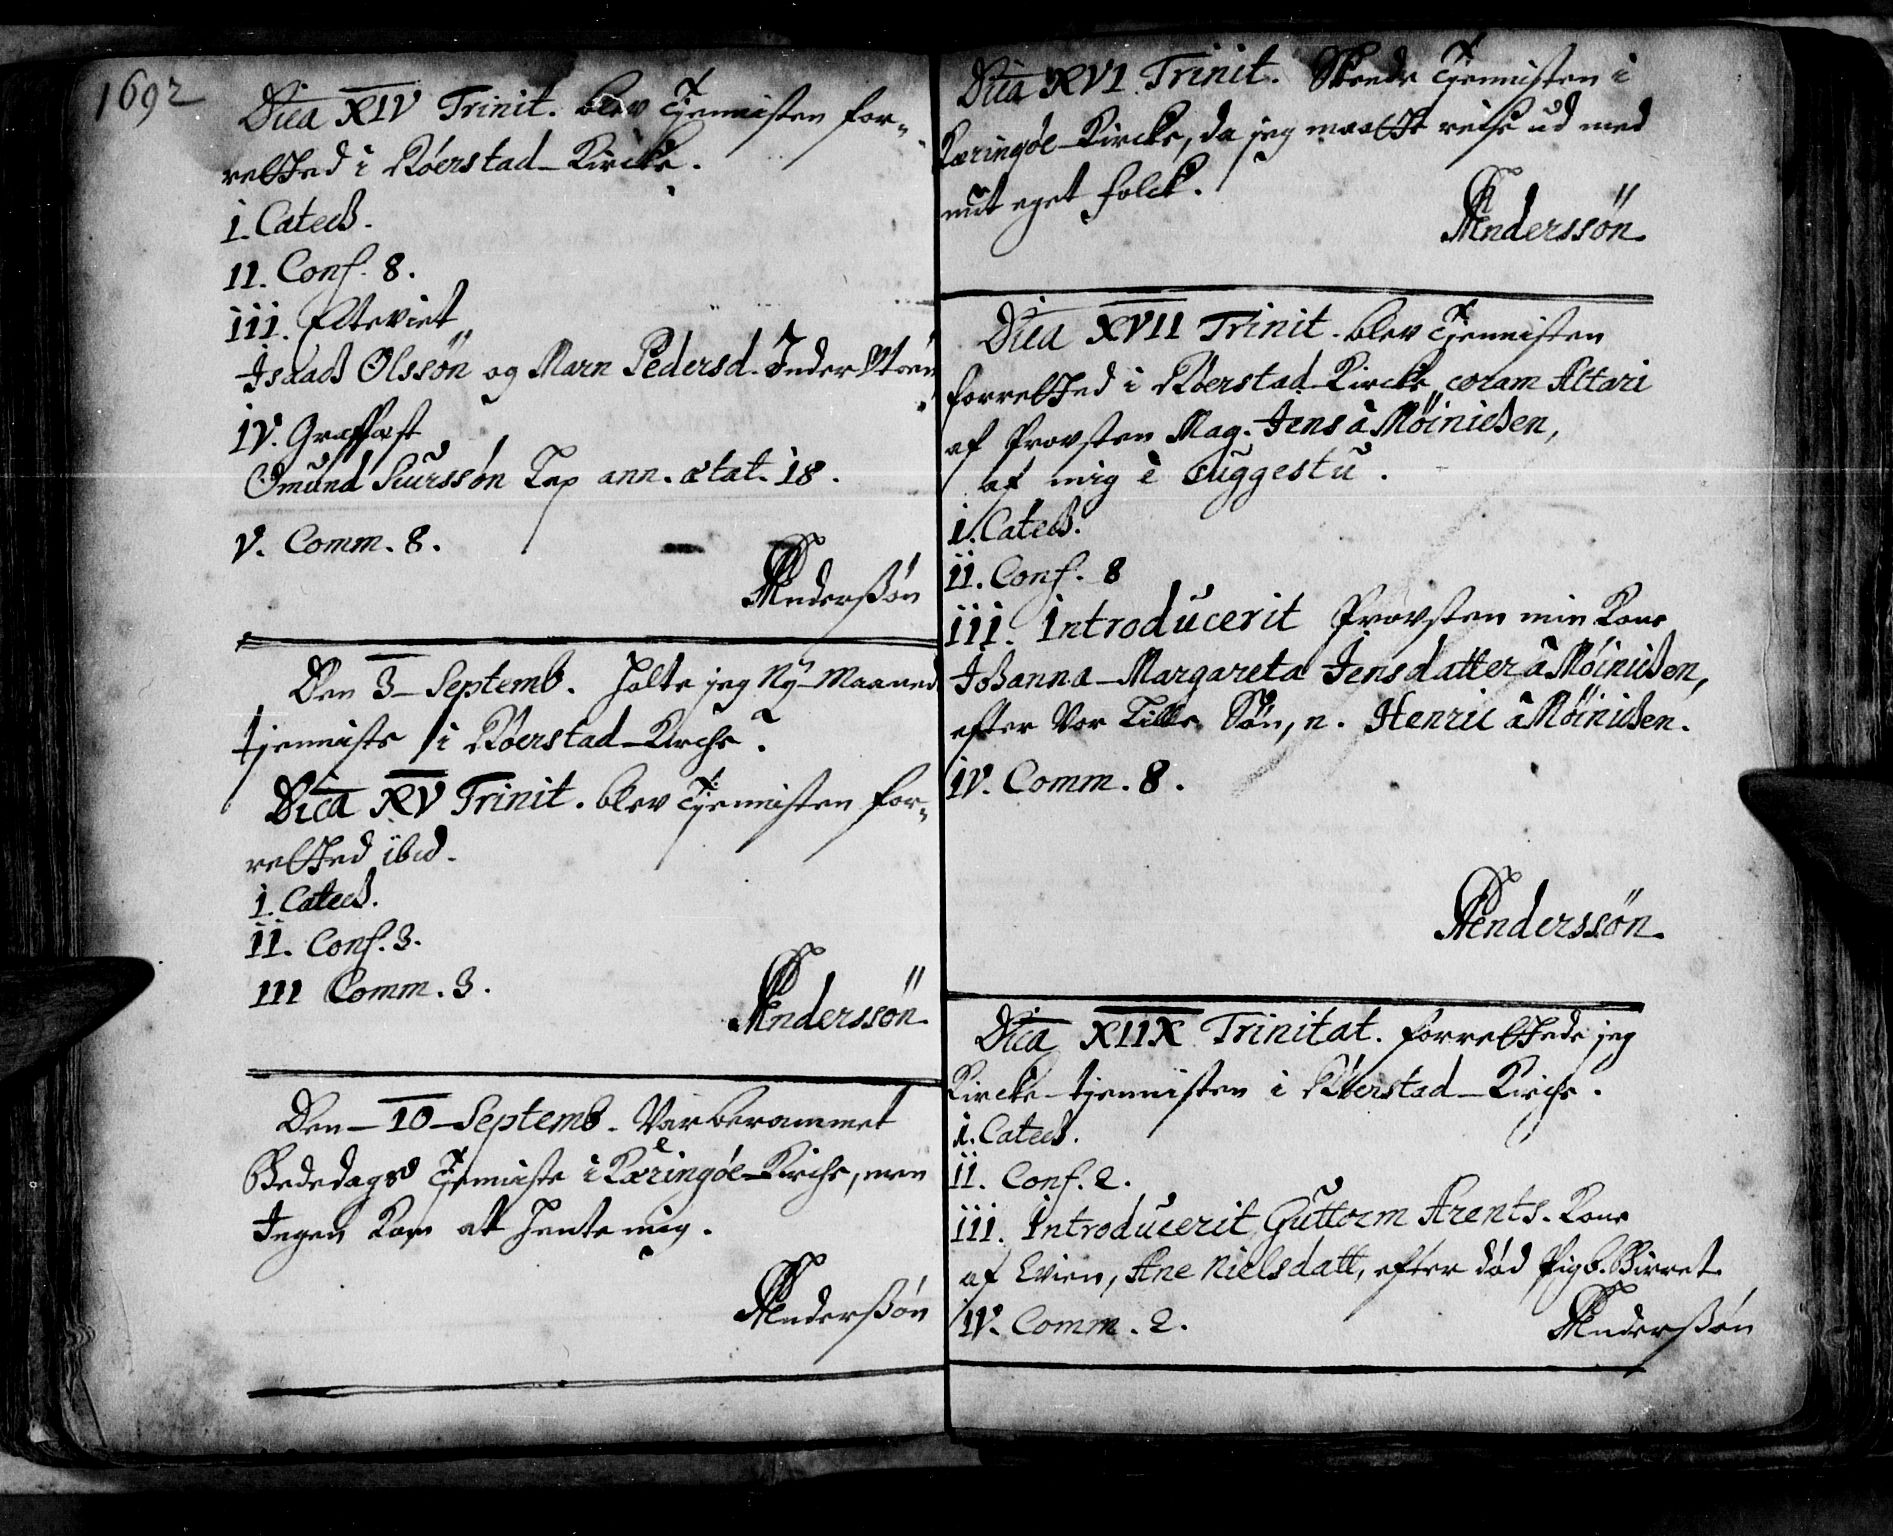 1692
Dica XIV Trinit. blev Tjennisten for-
retted i Röerstad-Kircke.
I. Catech.
II. Conf. 8.
III. Ægteviet
Isaach Olssön og Marn Pedersd. Inder
IV. Graffæst
Omund Siurssön ann. ætat. 18.
V. Comm. 8.
Anderssön
Den 3 Septemb. holte jeg Ny-Maaned
tjenniste i Röerstad-Kirche.
Dica XV Trinit. blev Tjennisten for-
retted ibid.
I. Catech.
II. Conf. 3.
III Comm. 3.
Anderssön
Den 10 Septemb. Var berammet
Bededags Tjenniste i Kæringöe-Kirche, men
Ingen Kom at hente mig.
Anderssön
Dica XVI. Trinit. Skeede Tjennisten i
Kæringöe-Kircke, da jeg maatte reise ud med
mit eget folck.
Anderssön
Dica XVII Trinit. blev Tjennisten
forretted i Röerstad-Kircke, coram Altari
af Provsten Mag. Jens â Möinichen,
af mig è Suggestu.
I. Catech.
II. Conf. 8
III. Introducerit Provsten min Kone
Johanna-Margareta Jensdatter â Möinichen,
efter Vor Lille Sön, n. Henric â Möinichen.
IV. Comm. 8.
Anderssön
Dica XIIX Trinitat. forrettede jeg
Kircke-tjennisten i Röerstad-Kirche.
I. Catech.
II. Conf. 2.
III. Introducerit Guttorm Arents. Kone
af Evien, Ane Nielsdatt, efter död Pigb. Birret
IV. Comm. 2.
Anderssön